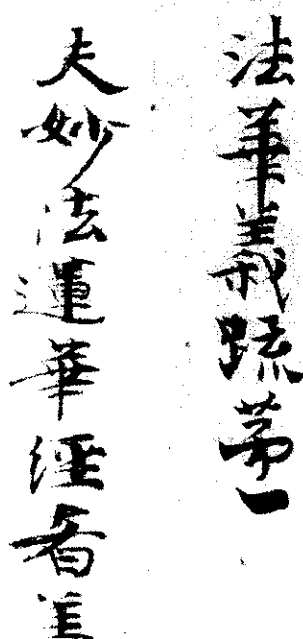 法華義疏第一
夫妙法蓮華經者盖